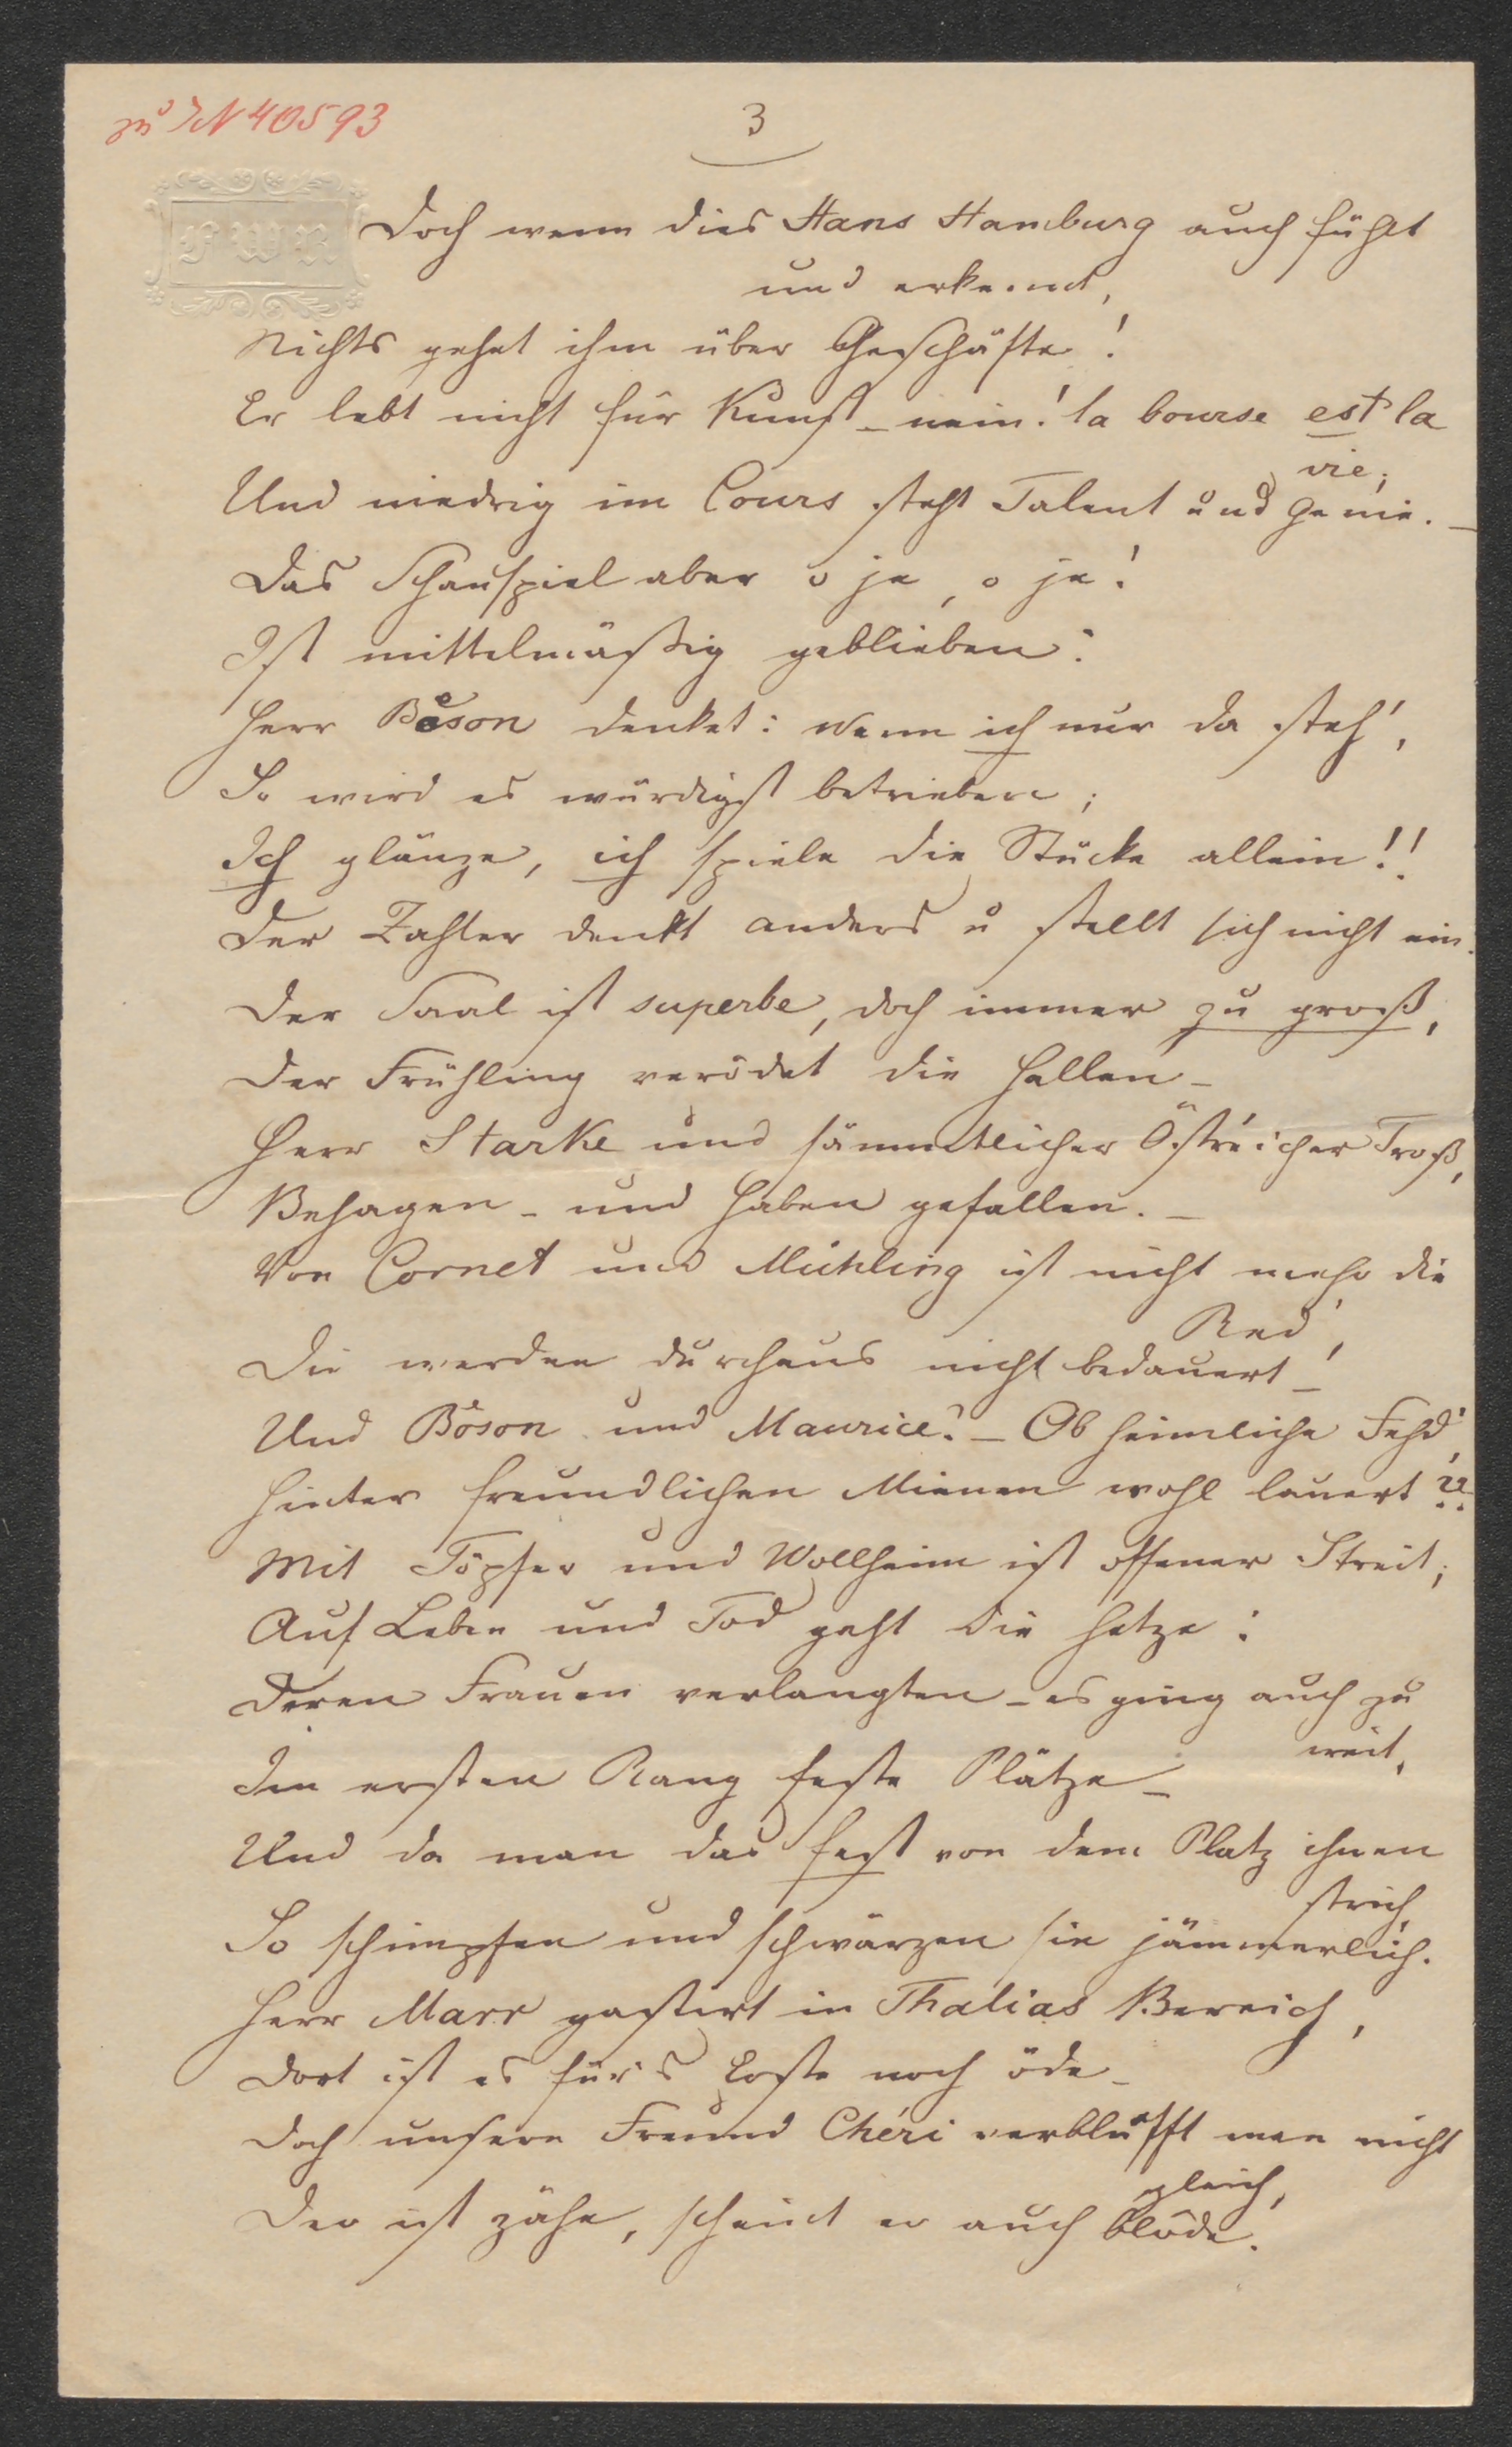 zu IN 40593
3
FWR
Doch wenn dies Hans Hamburg auch fühlt
und erkennt,
Nichts gehet ihm über Geschäfte!
Er lebt nicht für Kunst – nein! la bourse est la
vie;
Und niedrig im Cours steht Talent und Genie. –
Das Schauspiel aber o je, o je!
Ist mittelmäßig geblieben:
Herr Böson denket: Wenn ich nur da steh',
So wird es würdigst betrieben;
Ich glänze, ich spiele die Stücke allein!!
Der Zahler denkt anders u stellt sich nicht ein.
Der Saal ist superbe, doch immer zu groß,
Der Frühling verödet die Hallen –
Herr Starke und sämmtlicher Östreicher Troß,
Behagen – und haben gefallen. –
Von Cornet und Mühling ist nicht mehr die
Red',
Die werden durchaus nicht bedauert –
Und Böson und Maurice? – Ob heimliche Fehd'
Hinter freundlichen Mienen wohl lauert??
Mit Töpfer und Wollheim ist offener Streit;
Auf Leben und Tod geht die Hetze:
Deren Frauen verlangten – es ging auch zu
weit,
Im ersten Rang feste Plätze –
Und da man das fest von dem Platz ihnen
strich,
So schimpfen und schwärzen sie jämmerlich.
Herr Marr gastirt in Thalias Bereich,
Dort ist es für's Erste noch öde –
Doch unsern Freund Chéri verblüfft man nicht
gleich,
Der ist zähe, scheint er auch blöde.